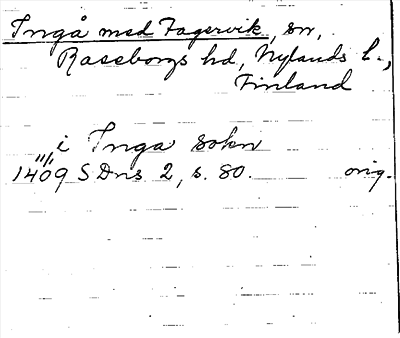 Ingå med Fagervik, sn,
Raseborgs hd, Nylands l.,
Finland
i Inga sokn
11/11
1409 SDns 2, s. 80. orig.